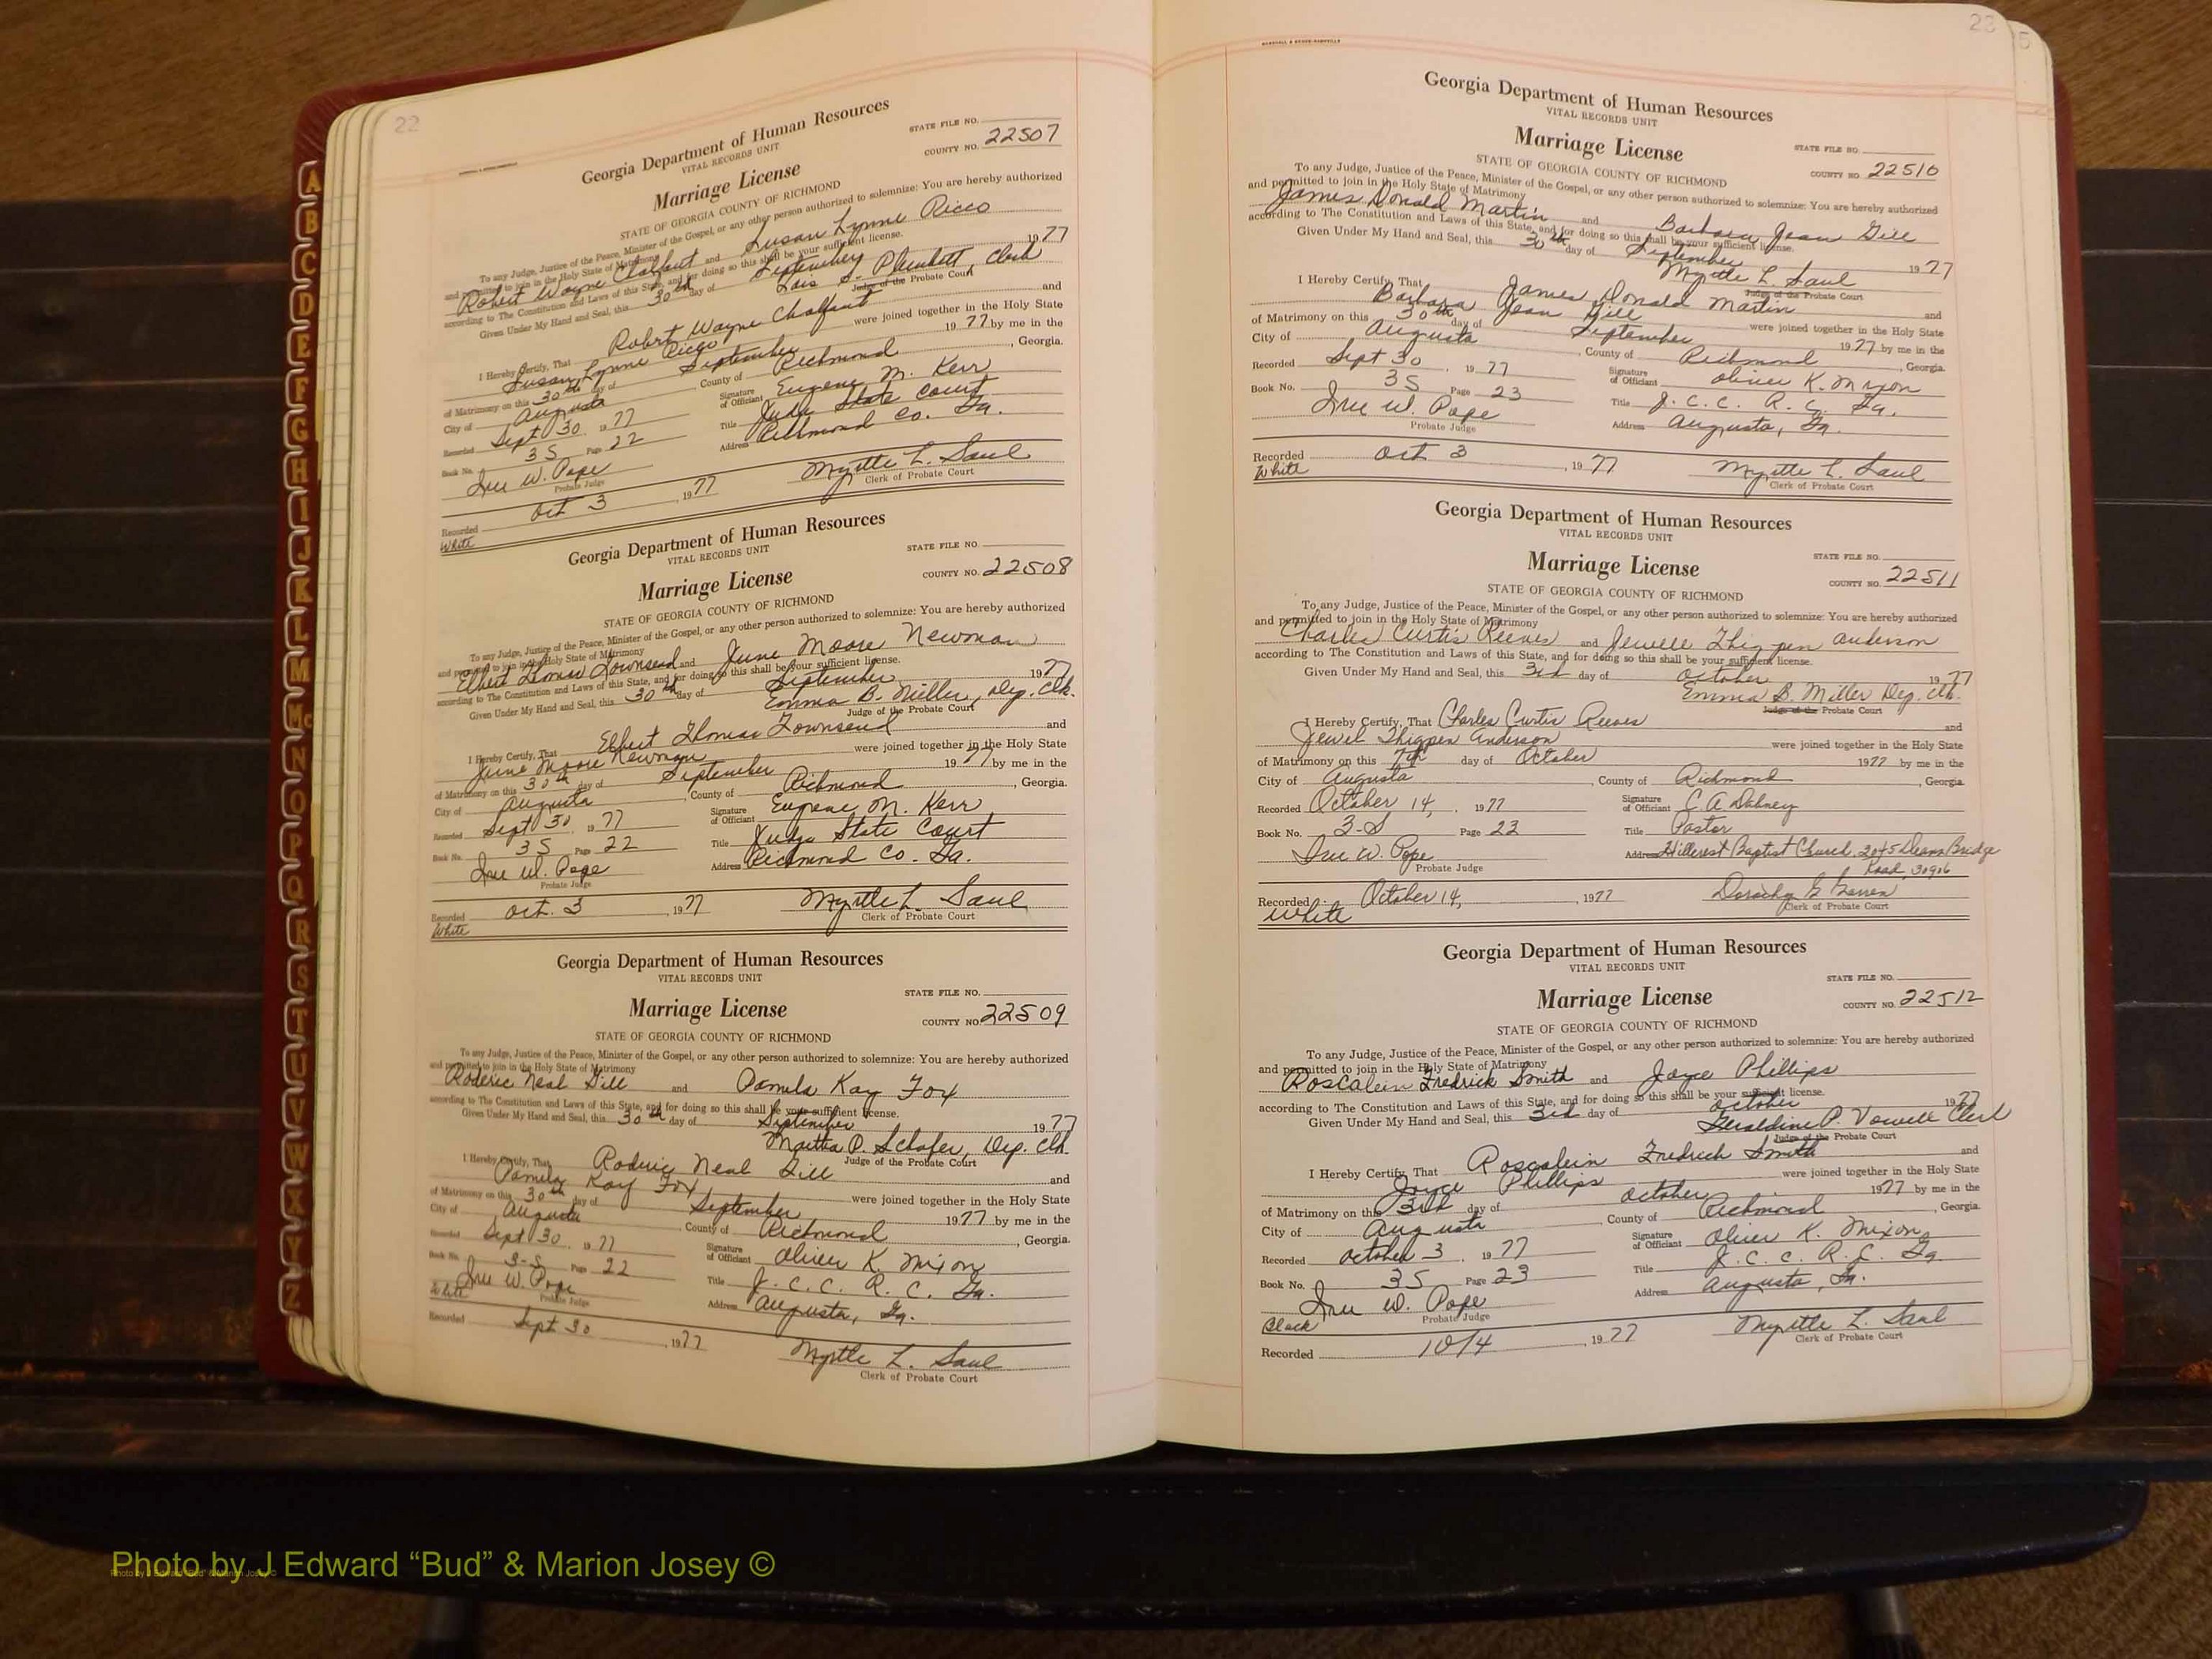 22
Georgia Department of Human Resources
VITAL RECORDS UNIT
STATE FILE NO.
Marriage License
COUNTY NO. 22507
STATE OF GEORGIA COUNTY OF RICHMOND
To any Judge, Justice of the Peace, Minister of the Gospel, or any other person authorized to solemnize: You are hereby authorized
and permitted to join in the Holy State of Matrimony
Robert Wayne Chalfant and Susan Lynne Ricco
according to The Constitution and Laws of this State, and for doing so this shall be your sufficient license.
Given Under My Hand and Seal, this 30th day of September 1977
Lois S. Plunkett, Clerk
Judge of the Probate Court
I Hereby Certify, That Robert Wayne Chalfant and
Susan Lynne Ricco were joined together in the Holy State
of Matrimony on this 30th day of September 1977 by me in the
City of Augusta, County of Richmond, Georgia.
Recorded Sept 30 1977 Signature of Officiant Eugene M. Kerr
Book No. 3S Page 22 Title Judge State Court
Iru W. Pope Address Richmond Co. Ga.
Probate Judge
Recorded Oct 3, 1977 Myrtle L. Saul
White Clerk of Probate Court
Georgia Department of Human Resources
VITAL RECORDS UNIT
STATE FILE NO.
Marriage License
COUNTY NO. 22508
STATE OF GEORGIA COUNTY OF RICHMOND
To any Judge, Justice of the Peace, Minister of the Gospel, or any other person authorized to solemnize: You are hereby authorized
and permitted to join in the Holy State of Matrimony
Elbert Thomas Townsend and June Moore Newman
according to The Constitution and Laws of this State, and for doing so this shall be your sufficient license.
Given Under My Hand and Seal, this 30th day of September 1977
Emma B. Miller, Dep. Clk.
Judge of the Probate Court
I Hereby Certify, That Elbert Thomas Townsend and
June Moore Newman were joined together in the Holy State
of Matrimony on this 30th day of September 1977 by me in the
City of Augusta, County of Richmond, Georgia.
Recorded Sept 30 1977 Signature of Officiant Eugene M. Kerr
Book No. 3S Page 22 Title Judge State Court
Iru W. Pope Address Richmond Co. Ga.
Probate Judge
Recorded Oct. 3, 1977 Myrtle L. Saul
White Clerk of Probate Court
Georgia Department of Human Resources
VITAL RECORDS UNIT
STATE FILE NO.
Marriage License
COUNTY NO. 22509
STATE OF GEORGIA COUNTY OF RICHMOND
To any Judge, Justice of the Peace, Minister of the Gospel, or any other person authorized to solemnize: You are hereby authorized
and permitted to join in the Holy State of Matrimony
Roderic Neal Gill and Pamela Kay Fox
according to The Constitution and Laws of this State, and for doing so this shall be your sufficient license.
Given Under My Hand and Seal, this 30th day of September 1977
Martha P. Schafer, Dep. Clk
Judge of the Probate Court
I Hereby Certify, That Roderic Neal Gill and
Pamela Kay Fox were joined together in the Holy State
of Matrimony on this 30th day of September 1977 by me in the
City of Augusta, County of Richmond, Georgia.
Recorded Sept 30 1977 Signature of Officiant Oliver K. Mixon
Book No. 3-S Page 22 Title J. C. C. R. C. Ga.
Iru W. Pope Address Augusta, Ga.
White Probate Judge
Recorded Sept 30, 1977 Myrtle L. Saul
Clerk of Probate Court
23
Georgia Department of Human Resources
VITAL RECORDS UNIT
Marriage License
STATE FILE NO.
STATE OF GEORGIA COUNTY OF RICHMOND
COUNTY NO. 22510
To any Judge, Justice of the Peace, Minister of the Gospel, or any other person authorized to solemnize: You are hereby authorized
and permitted to join in the Holy State of Matrimony
James Donald Martin and Barbara Jean Gill
according to The Constitution and Laws of this State, and for doing so this shall be your sufficient license.
Given Under My Hand and Seal, this 30th day of September 1977
Myrtle L. Saul
Judge of the Probate Court
I Hereby Certify, That James Donald Martin and
Barbara Jean Gill were joined together in the Holy State
of Matrimony on this 30th day of September 1977 by me in the
City of Augusta, County of Richmond, Georgia.
Recorded Sept 30, 1977 Signature of Officiant Oliver K. Mixon
Book No. 3S Page 23 Title J. C. C. R. C. Ga.
Iru W. Pope Address Augusta, Ga.
Probate Judge
Recorded Oct 3, 1977 Myrtle L. Saul
White Clerk of Probate Court
Georgia Department of Human Resources
VITAL RECORDS UNIT
STATE FILE NO.
Marriage License
COUNTY NO. 22511
STATE OF GEORGIA COUNTY OF RICHMOND
To any Judge, Justice of the Peace, Minister of the Gospel, or any other person authorized to solemnize: You are hereby authorized
and permitted to join in the Holy State of Matrimony
Charles Curtis Reeves and Jewell Thigpen Anderson
according to The Constitution and Laws of this State, and for doing so this shall be your sufficient license.
Given Under My Hand and Seal, this 3rd day of October 1977
Emma B. Miller Dep. Clk.
Judge of the Probate Court
I Hereby Certify, That Charles Curtis Reeves and
Jewel Thigpen Anderson were joined together in the Holy State
of Matrimony on this 7th day of October 1977 by me in the
City of Augusta, County of Richmond, Georgia.
Recorded October 14, 1977 Signature of Officiant C. A. Dabney
Book No. 3-S Page 23 Title Pastor
Iru W. Pope Address Hillcrest Baptist Church, 3045 Deans Bridge
Probate Judge Road, 30906
Recorded October 14, 1977 Dorothy G
White Clerk of Probate Court
Georgia Department of Human Resources
VITAL RECORDS UNIT
STATE FILE NO.
Marriage License
COUNTY NO. 22512
STATE OF GEORGIA COUNTY OF RICHMOND
To any Judge, Justice of the Peace, Minister of the Gospel, or any other person authorized to solemnize: You are hereby authorized
and permitted to join in the Holy State of Matrimony
Roscalein Fredrick Smith and Joyce Phillips
according to The Constitution and Laws of this State, and for doing so this shall be your sufficient license.
Given Under My Hand and Seal, this 3rd day of October 1977
Geraldine P. Vowell Clerk
Judge of the Probate Court
I Hereby Certify, That Roscalein Fredrick Smith and
Joyce Phillips were joined together in the Holy State
of Matrimony on this 3rd day of October 1977 by me in the
City of Augusta, County of Richmond, Georgia.
Recorded October 3, 1977 Signature of Officiant Oliver K. Mixon
Book No. 3S Page 23 Title J. C. C. R. C. Ga
Iru W. Pope Address Augusta, Ga.
Black Probate Judge
Recorded 10/4, 1977 Myrtle L. Saul
Clerk of Probate Court
A
B
C
D
E
F
G
H
I
J
K
L
M
Mc
N
O
P
Q
R
S
T
U
V
W
X
Y
Z
Photo by J Edward “Bud” & Marion Josey ©